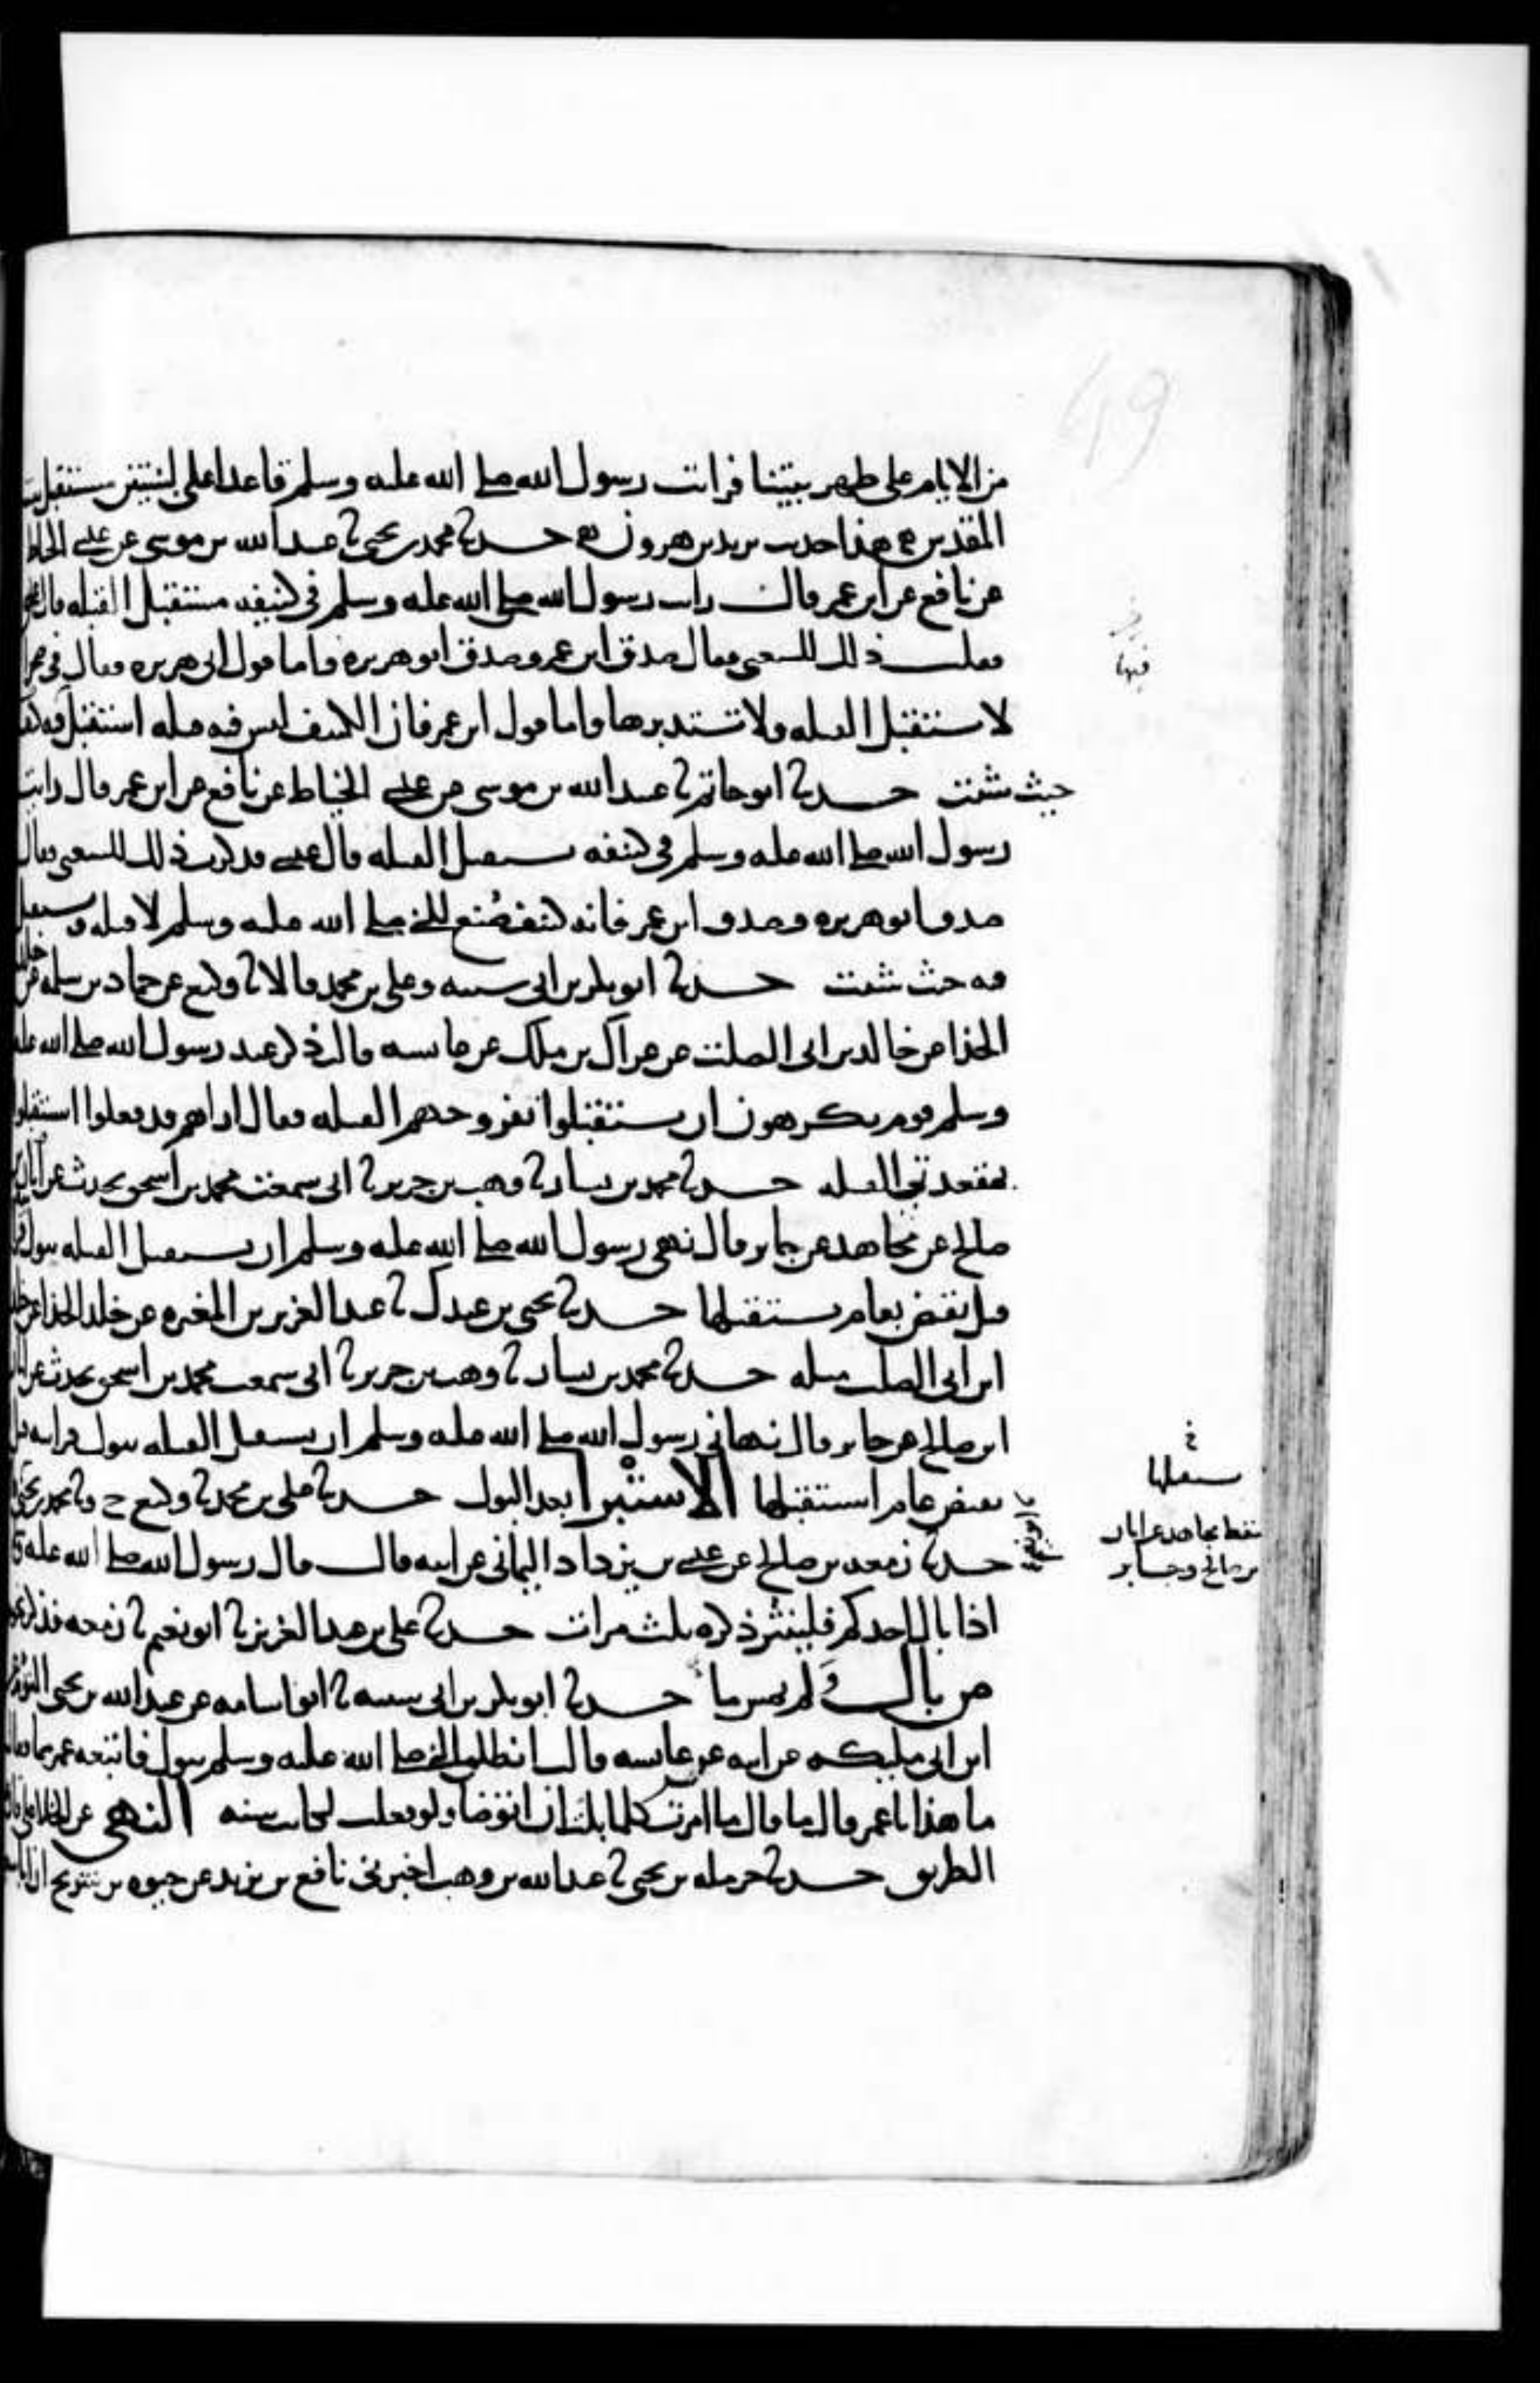 من الايام على ظهر بيتنا فرايت رسول الله صلى الله عليه وسلم قاعدا على لبنتين مستقبل بيت
المقدس هذا حديث يزيد بن هرون حدثنا محمد بن يحيى نا عبد الله بن موسى عن عيسى الحناط
عن نافع عن ابن عمر قال رايت رسول الله صلى الله عليه وسلم في كنيفه مستقبل القبلة قال عيسى
فقلت ذلك للشعبي فقال صدق ابن عمر وصدق ابو هريرة فاما قول ابي هريرة فقال في الصحرا
لا يستقبل القبلة ولا يستدبرها واما قول ابن عمر فان الكنيف ليس فيه قبلة استقبل فيه
حيث شئت حدثنا ابو حاتم نا عبد الله بن موسى عن عيسى الخياط عن نافع عن ابن عمر قال رايت
رسول الله صلى الله عليه وسلم في كنيفه مستقبل القبلة قال عيسى فذكرت ذلك للشعبي فقال
صدق ابو هريرة وصدق ابن عمر فانه كنيف صنع للنبي صلى الله عليه وسلم لا قبلة فيه يستقبل
فيه حيث شئت حدثنا ابو بكر بن ابي شيبة وعلي بن محمد قالا نا وكيع عن حماد بن سلمة عن خلد
الحذا عن خالد بن ابي الصلت عن عراك بن ملك عن عائشة قالت ذكر عند رسول الله صلى الله عليه
وسلم قوم يكرهون ان يستقبلوا بفروجهم القبلة فقال اراهم قد فعلوا استقبلوا
بمقعدتي القبلة حدثنا محمد بن بشار نا وهب بن جرير نا ابي سمعت محمد بن اسحق يحدث عن ابان بن
صالح عن مجاهد عن جابر قال نهى رسول الله صلى الله عليه وسلم ان يستقبل القبلة ببول فرايته
قبل ان يقبض بعام يستقبلها حدثنا يحيى بن عبدك نا عبد العزيز بن المغيرة عن خلد الحذا عن خلد
ابن ابي الصلت مثله حدثنا محمد بن بشار نا وهب بن جرير نا ابي سمعت محمد بن اسحق يحدث عن ابان
ابن صالح عن جابر قال نهاني رسول الله صلى الله عليه وسلم ان يستقبل القبلة ببول فرايته قبل
يقبض بعام استقبلها الاستبرا بعد البول حدثنا علي بن محمد نا وكيع ح ونا محمد بن يحيى
حدثنا زمعة بن صالح عن عيسى بن يزداد اليماني عن ابيه قال قال رسول الله صلى الله عليه
اذا بال احدكم فلينثر ذكره ثلث مرات حدثنا علي بن عبد العزيز نا ابو نعيم نا زمعة فذكر نحوه
من بال ولم يمس ما حدثنا ابو بكر بن ابي شيبة نا ابو اسامة عن عبد الله بن يحيى التوءم عن
ابن ابي مليكة عن ابيه عن عائشة قالت انطلق النبي صلى الله عليه وسلم يبول فاتبعه عمر بما فقال
ما هذا يا عمر قال ما قال ما امرت كلما بلت ان اتوضا ولو فعلت لكانت سنة النهي عن الخلا على قارعة
الطريق حدثنا حرملة بن يحيى نا عبد الله بن وهب اخبرني نافع بن يزيد عن حيوة بن شريح ان ابا سعيد
فيها
خ
يستقبلها
سقط مجاهد عن ابان
بن صالح وجابر
نا ابو نعيم
49